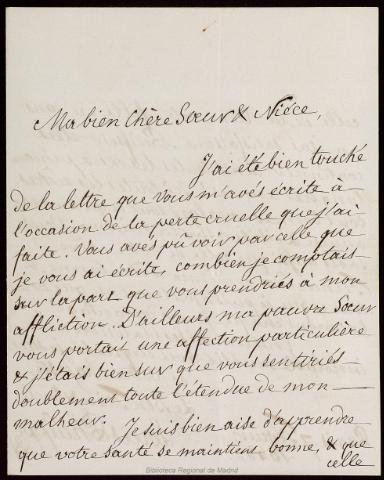 Ma bien Chère Sœur & Niéce,
J'ai été bien touché
de la lettre que vous m'avés écrite à
l'occasion de la perte cruelle que j'ai
faite. Vous avés pû voir par celle que
je vous ai écrite, combien je comptais
sur la part que vous prendriés à mon
affliction. D'ailleurs ma pauvre Sœur
vous portait une affection particulière
& j'étais bien sur que vous sentiriés
doublement toute l'étendue de mon
malheur. Je suis bien aise d'apprendre
que votre santé se maintiens bonne, & que
celle
Biblioteca Regional de Madrid